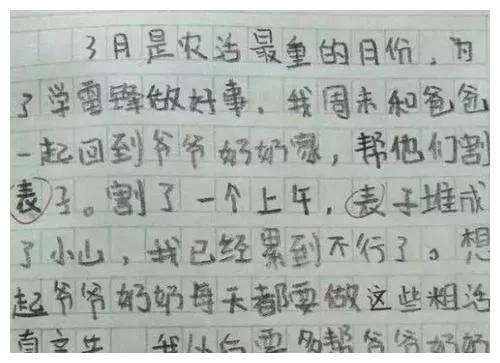 3月是农活最重的月份，为
了学雷锋做好事，我周末和爸爸
一起回到爷爷奶奶家，帮他们割
表子。割了一个上午，表子堆成
了小山，我已经累到不行了。想
起爷爷奶奶每天都要做这些粗活
真辛苦，我以后要多帮爷爷奶奶